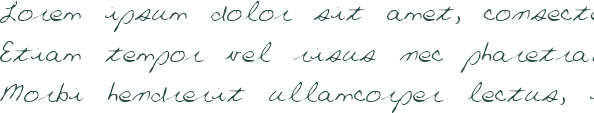 Lorem ipsum dolor sit amet, consecte
Etiam tempor vel risus nec pharetra.
Morbi hendrerit ullamcorper lectus,